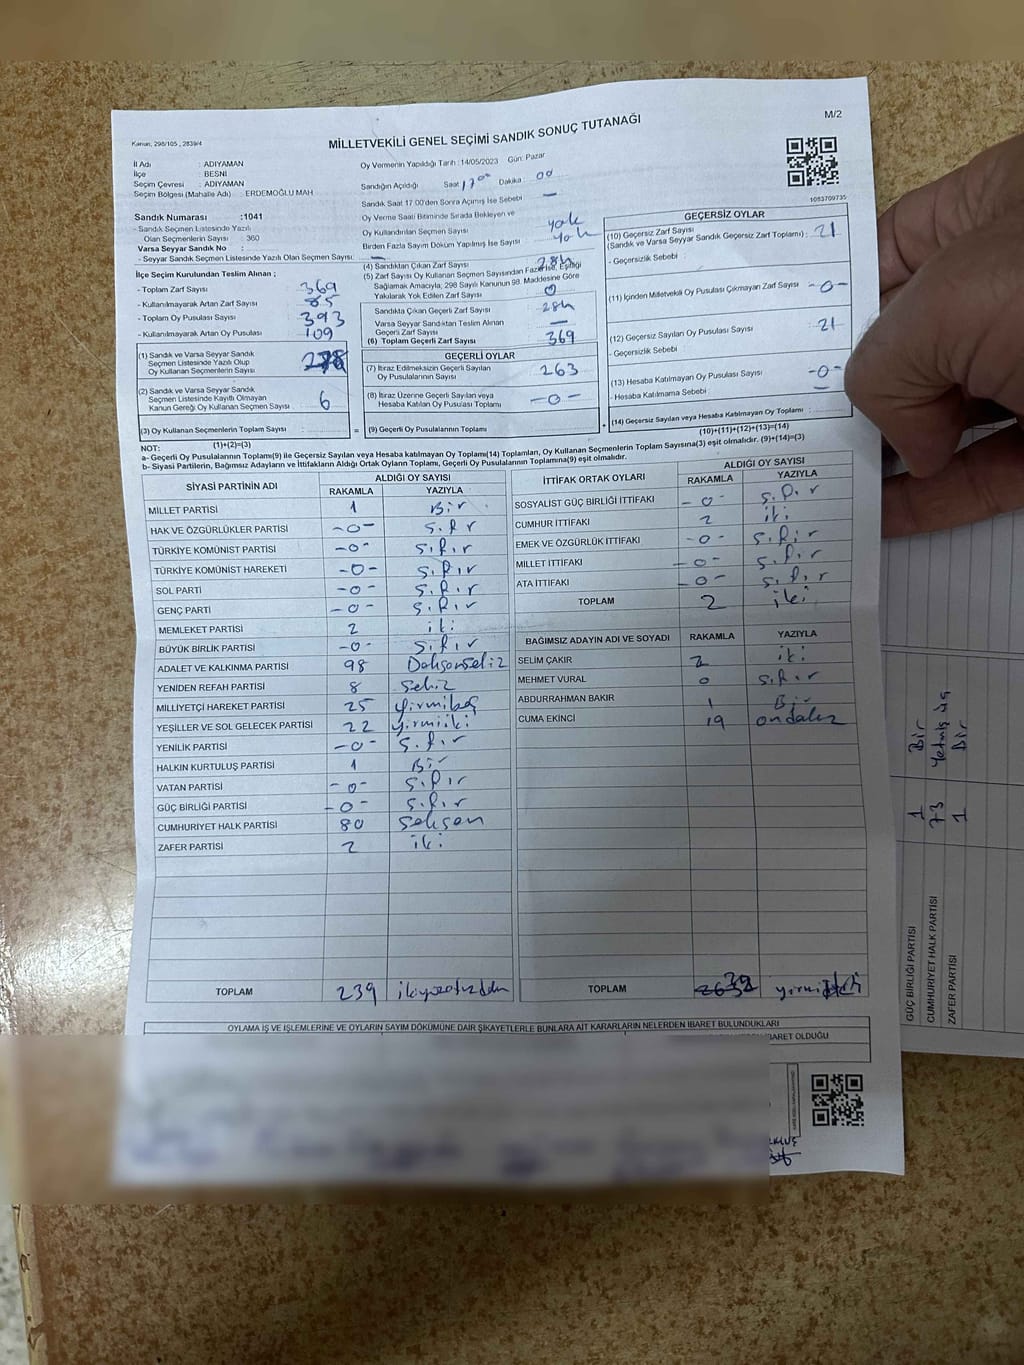 M/2
Kanun, 298/105 , 2839/4
MİLLETVEKİLİ GENEL SEÇİMİ SANDIK SONUÇ TUTANAĞI
İl Adı : ADIYAMAN
İlçe : BESNİ
Seçim Çevresi : ADIYAMAN
Seçim Bölgesi (Mahalle Adı) : ERDEMOĞLU MAH
Sandık Numarası :1041
- Sandık Seçmen Listesinde Yazılı
Olan Seçmenlerin Sayısı : 360
Varsa Seyyar Sandık No :
- Seyyar Sandık Seçmen Listesinde Yazılı Olan Seçmen Sayısı: —
İlçe Seçim Kurulundan Teslim Alınan ;
- Toplam Zarf Sayısı 369
- Kullanılmayarak Artan Zarf Sayısı 85
- Toplam Oy Pusulası Sayısı 393
- Kullanılmayarak Artan Oy Pusulası 109
(1) Sandık ve Varsa Seyyar Sandık
Seçmen Listesinde Yazılı Olup
Oy Kullanan Seçmenlerin Sayısı
(2) Sandık ve Varsa Seyyar Sandık
Seçmen Listesinde Kayıtlı Olmayan
Kanun Gereği Oy Kullanan Seçmen Sayısı : 6
(3) Oy Kullanan Seçmenlerin Toplam Sayısı :
(1)+(2)=(3)
Oy Vermenin Yapıldığı Tarih :14/05/2023 Gün: Pazar
Sandığın Açıldığı Saat 17 00 Dakika : 00
Sandık Saat 17.00'den Sonra Açılmış İse Sebebi —
Oy Verme Saati Bitiminde Sırada Bekleyen ve
Oy Kullandırılan Seçmen Sayısı yok
Birden Fazla Sayım Döküm Yapılmış İse Sayısı yok
(4) Sandıktan Çıkan Zarf Sayısı 284
(5) Zarf Sayısı Oy Kullanan Seçmen Sayısından Fazla İse, Eşitliği
Sağlamak Amacıyla; 298 Sayılı Kanunun 98. Maddesine Göre
Yakılarak Yok Edilen Zarf Sayısı 0
Sandıkta Çıkan Geçerli Zarf Sayısı 284
Varsa Seyyar Sandıktan Teslim Alınan
Geçerli Zarf Sayısı —
(6) Toplam Geçerli Zarf Sayısı 369
GEÇERLİ OYLAR
(7) İtiraz Edilmeksizin Geçerli Sayılan
Oy Pusulalarının Sayısı 263
(8) İtiraz Üzerine Geçerli Sayılan veya
Hesaba Katılan Oy Pusulası Toplamı -0-
= (9) Geçerli Oy Pusulalarının Toplamı +
1053709735
GEÇERSİZ OYLAR
(10) Geçersiz Zarf Sayısı
(Sandık ve Varsa Seyyar Sandık Geçersiz Zarf Toplamı) : 21
- Geçersizlik Sebebi :
(11) İçinden Milletvekili Oy Pusulası Çıkmayan Zarf Sayısı -0-
(12) Geçersiz Sayılan Oy Pusulası Sayısı 21
- Geçersizlik Sebebi :
(13) Hesaba Katılmayan Oy Pusulası Sayısı -0-
- Hesaba Katılmama Sebebi : —
(14) Geçersiz Sayılan veya Hesaba Katılmayan Oy Toplamı :
(10)+(11)+(12)+(13)=(14)
NOT:
a- Geçerli Oy Pusulalarının Toplamı(9) ile Geçersiz Sayılan veya Hesaba katılmayan Oy Toplamı(14) Toplamları, Oy Kullanan Seçmenlerin Toplam Sayısına(3) eşit olmalıdır. (9)+(14)=(3)
b- Siyasi Partilerin, Bağımsız Adayların ve İttifakların Aldığı Ortak Oyların Toplamı, Geçerli Oy Pusulalarının Toplamına(9) eşit olmalıdır.
SİYASİ PARTİNİN ADI ALDIĞI OY SAYISI
RAKAMLA YAZIYLA
MİLLET PARTİSİ 1 Bir
HAK VE ÖZGÜRLÜKLER PARTİSİ -0- sıfır
TÜRKİYE KOMÜNİST PARTİSİ -0- sıfır
TÜRKİYE KOMÜNİST HAREKETİ -0- sıfır
SOL PARTİ -0- sıfır
GENÇ PARTİ -0- sıfır
MEMLEKET PARTİSİ 2 iki
BÜYÜK BİRLİK PARTİSİ -0- sıfır
ADALET VE KALKINMA PARTİSİ 98 Doksansekiz
YENİDEN REFAH PARTİSİ 8 Sekiz
MİLLİYETÇİ HAREKET PARTİSİ 25 Yirmibeş
YEŞİLLER VE SOL GELECEK PARTİSİ 22 Yirmiiki
YENİLİK PARTİSİ -0- sıfır
HALKIN KURTULUŞ PARTİSİ 1 Bir
VATAN PARTİSİ -0- sıfır
GÜÇ BİRLİĞİ PARTİSİ -0- sıfır
CUMHURİYET HALK PARTİSİ 80 Seksen
ZAFER PARTİSİ 2 iki
TOPLAM 239
İTTİFAK ORTAK OYLARI ALDIĞI OY SAYISI
RAKAMLA YAZIYLA
SOSYALİST GÜÇ BİRLİĞİ İTTİFAKI -0- sıfır
CUMHUR İTTİFAKI 2 iki
EMEK VE ÖZGÜRLÜK İTTİFAKI -0- sıfır
MİLLET İTTİFAKI -0- sıfır
ATA İTTİFAKI -0- sıfır
TOPLAM 2 iki
BAĞIMSIZ ADAYIN ADI VE SOYADI RAKAMLA YAZIYLA
SELİM ÇAKIR 2 iki
MEHMET VURAL 0 sıfır
ABDURRAHMAN BAKIR 1 Bir
CUMA EKİNCİ 19 ondokuz
TOPLAM
OYLAMA İŞ VE İŞLEMLERİNE VE OYLARIN SAYIM DÖKÜMÜNE DAİR ŞİKAYETLERLE BUNLARA AİT KARARLARIN NELERDEN İBARET BULUNDUKLARI
İBARET OLDUĞU
GÜÇ BİRLİĞİ PARTİSİ 1 Bir
CUMHURİYET HALK PARTİSİ 73 Yetmiş üç
ZAFER PARTİSİ 1 Bir